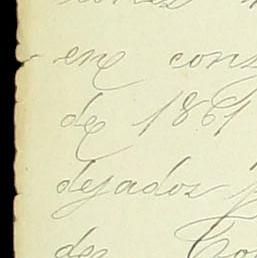 en cons
de 1861
dejados p
de Co